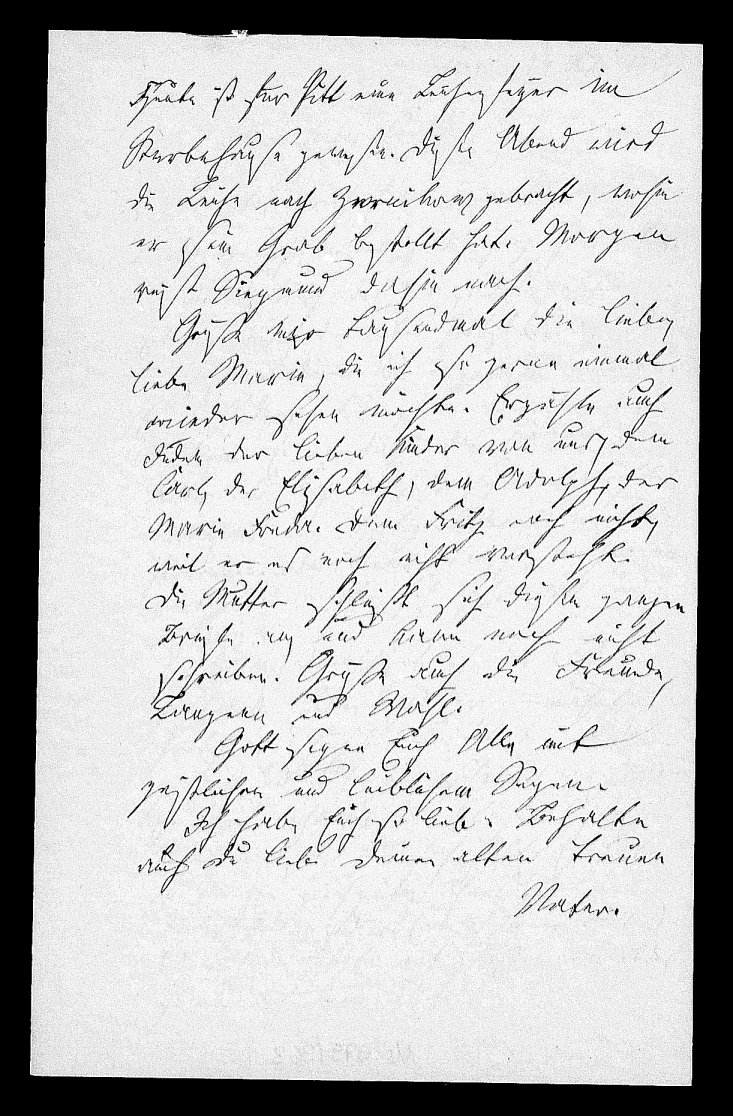 Heute ist für Pitt eine Leichenfeyer im
Sterbehause gewesen. Diesen Abend wird
die Leiche nach gebracht, wohin
er sein Grab bestellt hat. Morgen
reist Siegmund dahin nach.
Grüße mir tausendmal die liebe,
liebe Marie, die ich so gerne einmal
wieder sehen möchte. Erzähle auch
Jedem der lieben Kinder von uns, dem
Carl, der Elisabeth, dem Adolph, der
Marie Frieda. Dem Fritz noch nicht,
weil er es noch nicht versteht.
Die Mutter schließt sich diesem ganzen
Briefe an und kann noch nicht
schreiben. Grüße auch die Freunde,
und
Gott segne Euch Alle mit
geistlichem und leiblichem Segen.
Ich habe Euch so lieb. Behalte
auch Du lieb Deinen alten treuen
Vater.